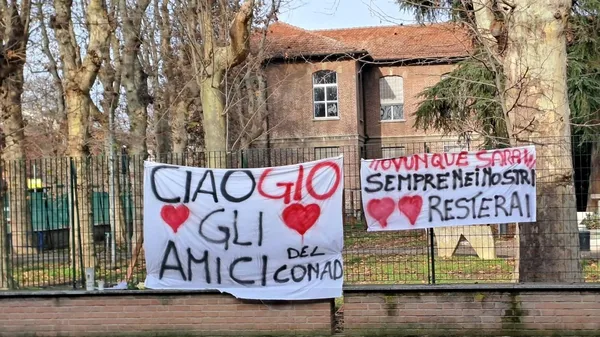 CIAO GIO
GLI
AMICI DEL CONAD
OVUNQUE SARAI
SEMPRE NEI NOSTRI
RESTERAI